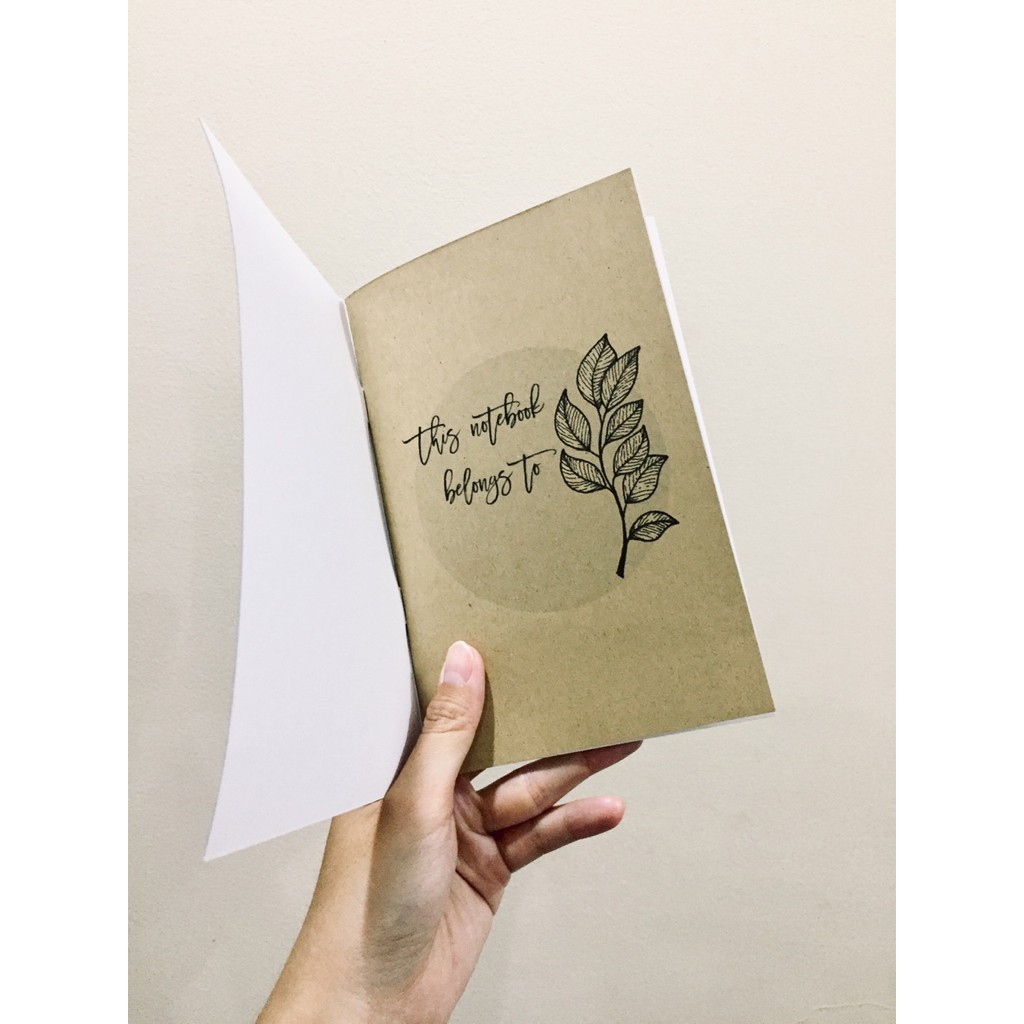 this notebook
belongs to